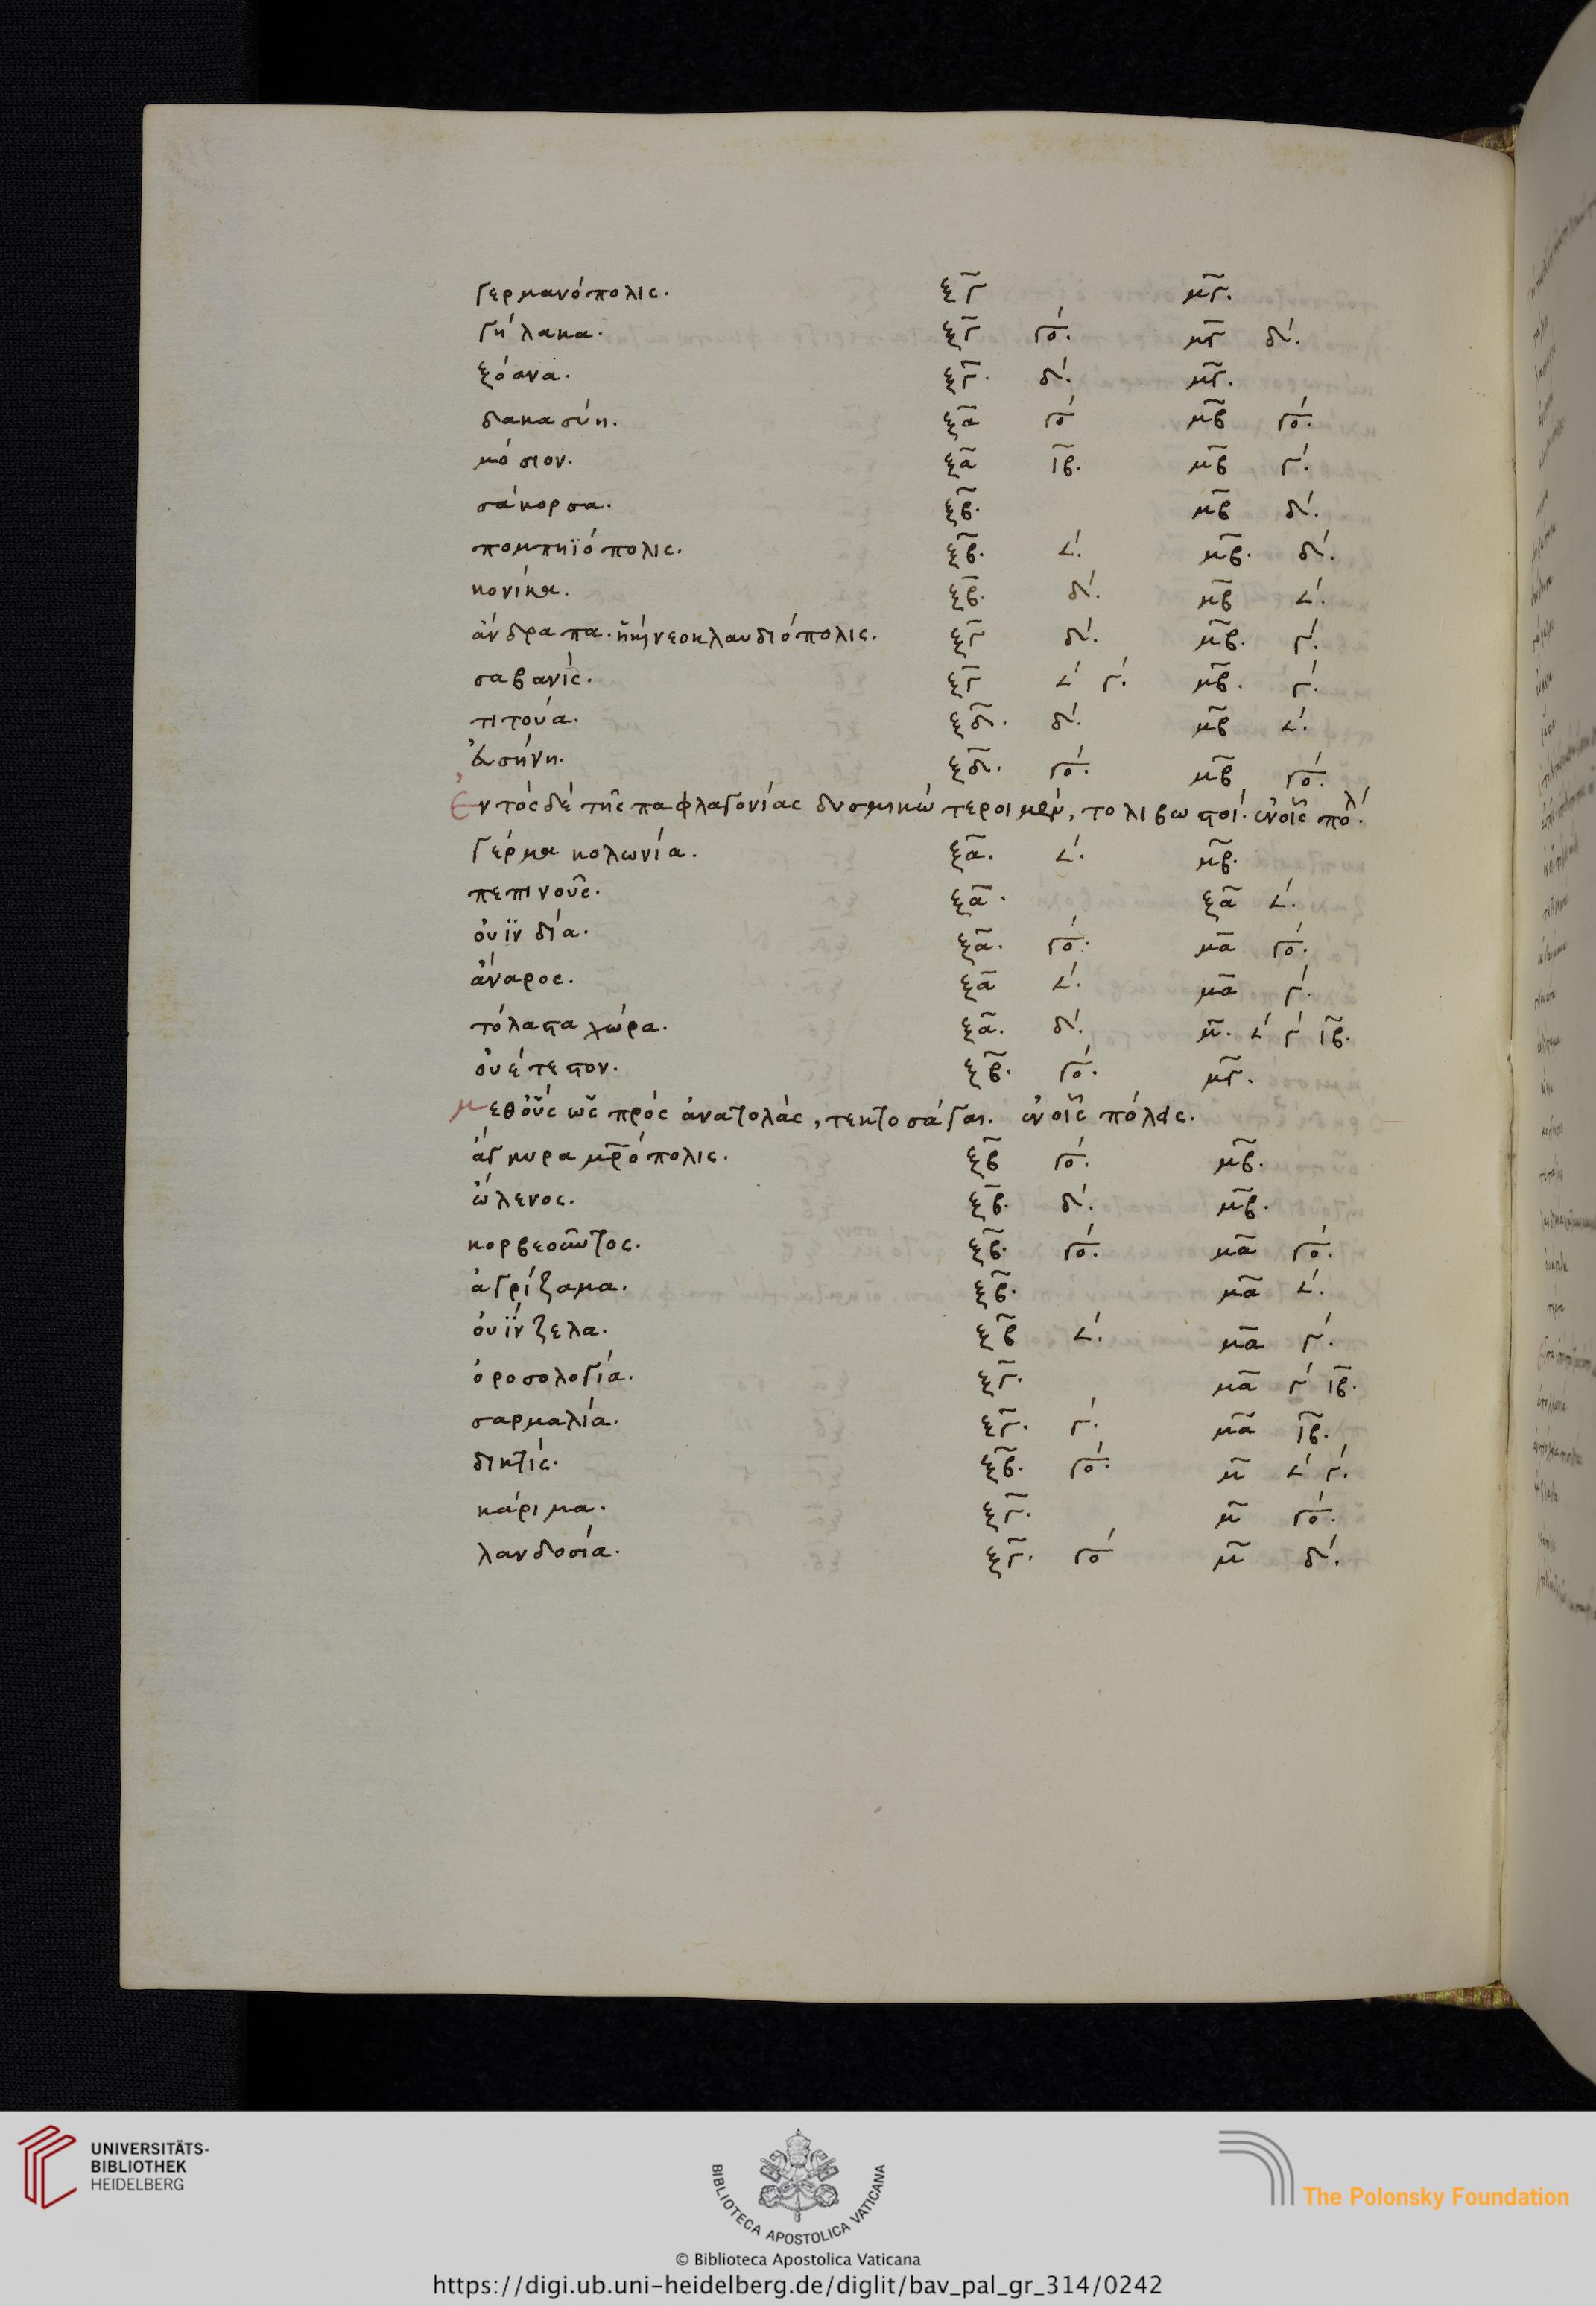 γερμανόπολις. ξγ μγ.
γήλακα. ξγ γό. μγ δ΄.
ξόανα. ξγ. δ΄. μγ.
δακασύη. ξα γό μβ γό.
μόσιον. ξα ιβ. μβ γ΄.
σάκορσα. ξβ. μβ δ΄.
πομπηϊόπολις. ξβ. ∠΄. μβ. δ΄.
κονίκα. ξβ. δ΄. μβ ∠΄.
ἄνδραπα. ἡ καὶ νεοκλαυδιόπολις. ξγ δ΄. μβ. γ΄.
σαβανίς. ξγ ∠΄ γ΄. μβ. γ΄.
τιτούα. ξδ. δ΄. μβ ∠΄.
ἐσήνη. ξδ. γό. μβ γό.
Ἐντὸς δὲ τῆς παφλαγονίας δυσμικώτεροι μὲν, τολιβωποί. ἐν οἷς πόλ.
γέρμα κολωνία. ξα. ∠΄. μβ.
πεπινοῦς. ξα. ξα ∠΄.
ὀυϊνδία. ξα. γό. μα γό.
ἄναρος. ξα ∠΄. μα γ΄.
τόλαπα χώρα. ξα. δ΄. μ. ∠΄ γ΄ ιβ.
ὀυέτεπον. ξβ. γό. μγ.
μεθ οὓς ὡς πρὸς ἀνατολὰς, τεκτοσάγαι. ἐν οἷς πόλεις.
ἄγκυρα μρόπολις. ξβ γό. μβ.
ὤλενος. ξβ. δ΄. μβ.
κορβεοῦντος. ξβ. γό. μα γό.
ἀγρίζαμα. ξβ. μα ∠΄.
ὀυΐνζελα. ξβ ∠΄. μα γ΄.
ὀροσολογία. ξγ. μα γ΄ ιβ.
σαρμαλία. ξγ. γ΄. μα ιβ.
δικτίς. ξβ. γό. μ ∠΄ γ΄.
κάριμα. ξγ. μ γό.
λανδοσία. ξγ. γό μ δ΄.
UNIVERSITÄTS-
BIBLIOTHEK
HEIDELBERG
BIBLIOTECA APOSTOLICA VATICANA
The Polonsky Foundation
© Biblioteca Apostolica Vaticana
https://digi.ub.uni-heidelberg.de/diglit/bav_pal_gr_314/0242